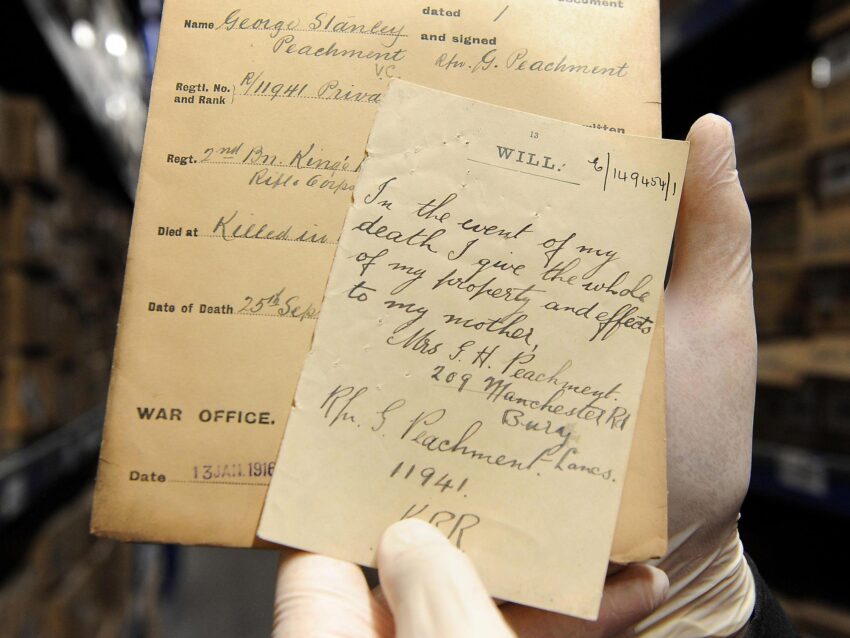 Document
dated /
Name George Stanley
Peachment
V.C.
and signed
Rfn. G. Peachment
Regtl. No. and Rank R/11941 Priva
written
Regt. 2nd Bn. King's
Rifle Corps
Died at Killed in
Date of Death 25th Sep
WAR OFFICE.
Date 13 JAN. 1916
13
WILL.
E/149454/1
In the event of my
death I give the whole
of my property and effects
to my mother,
Mrs G. H. Peachment.
209 Manchester Rd
Bury
Lancs.
Rfn. G Peachment.
11941.
KRR